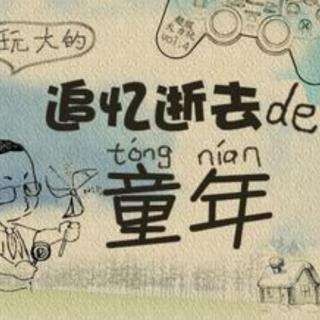 玩大的
vol.4
追忆逝去de
tóng nían
童年